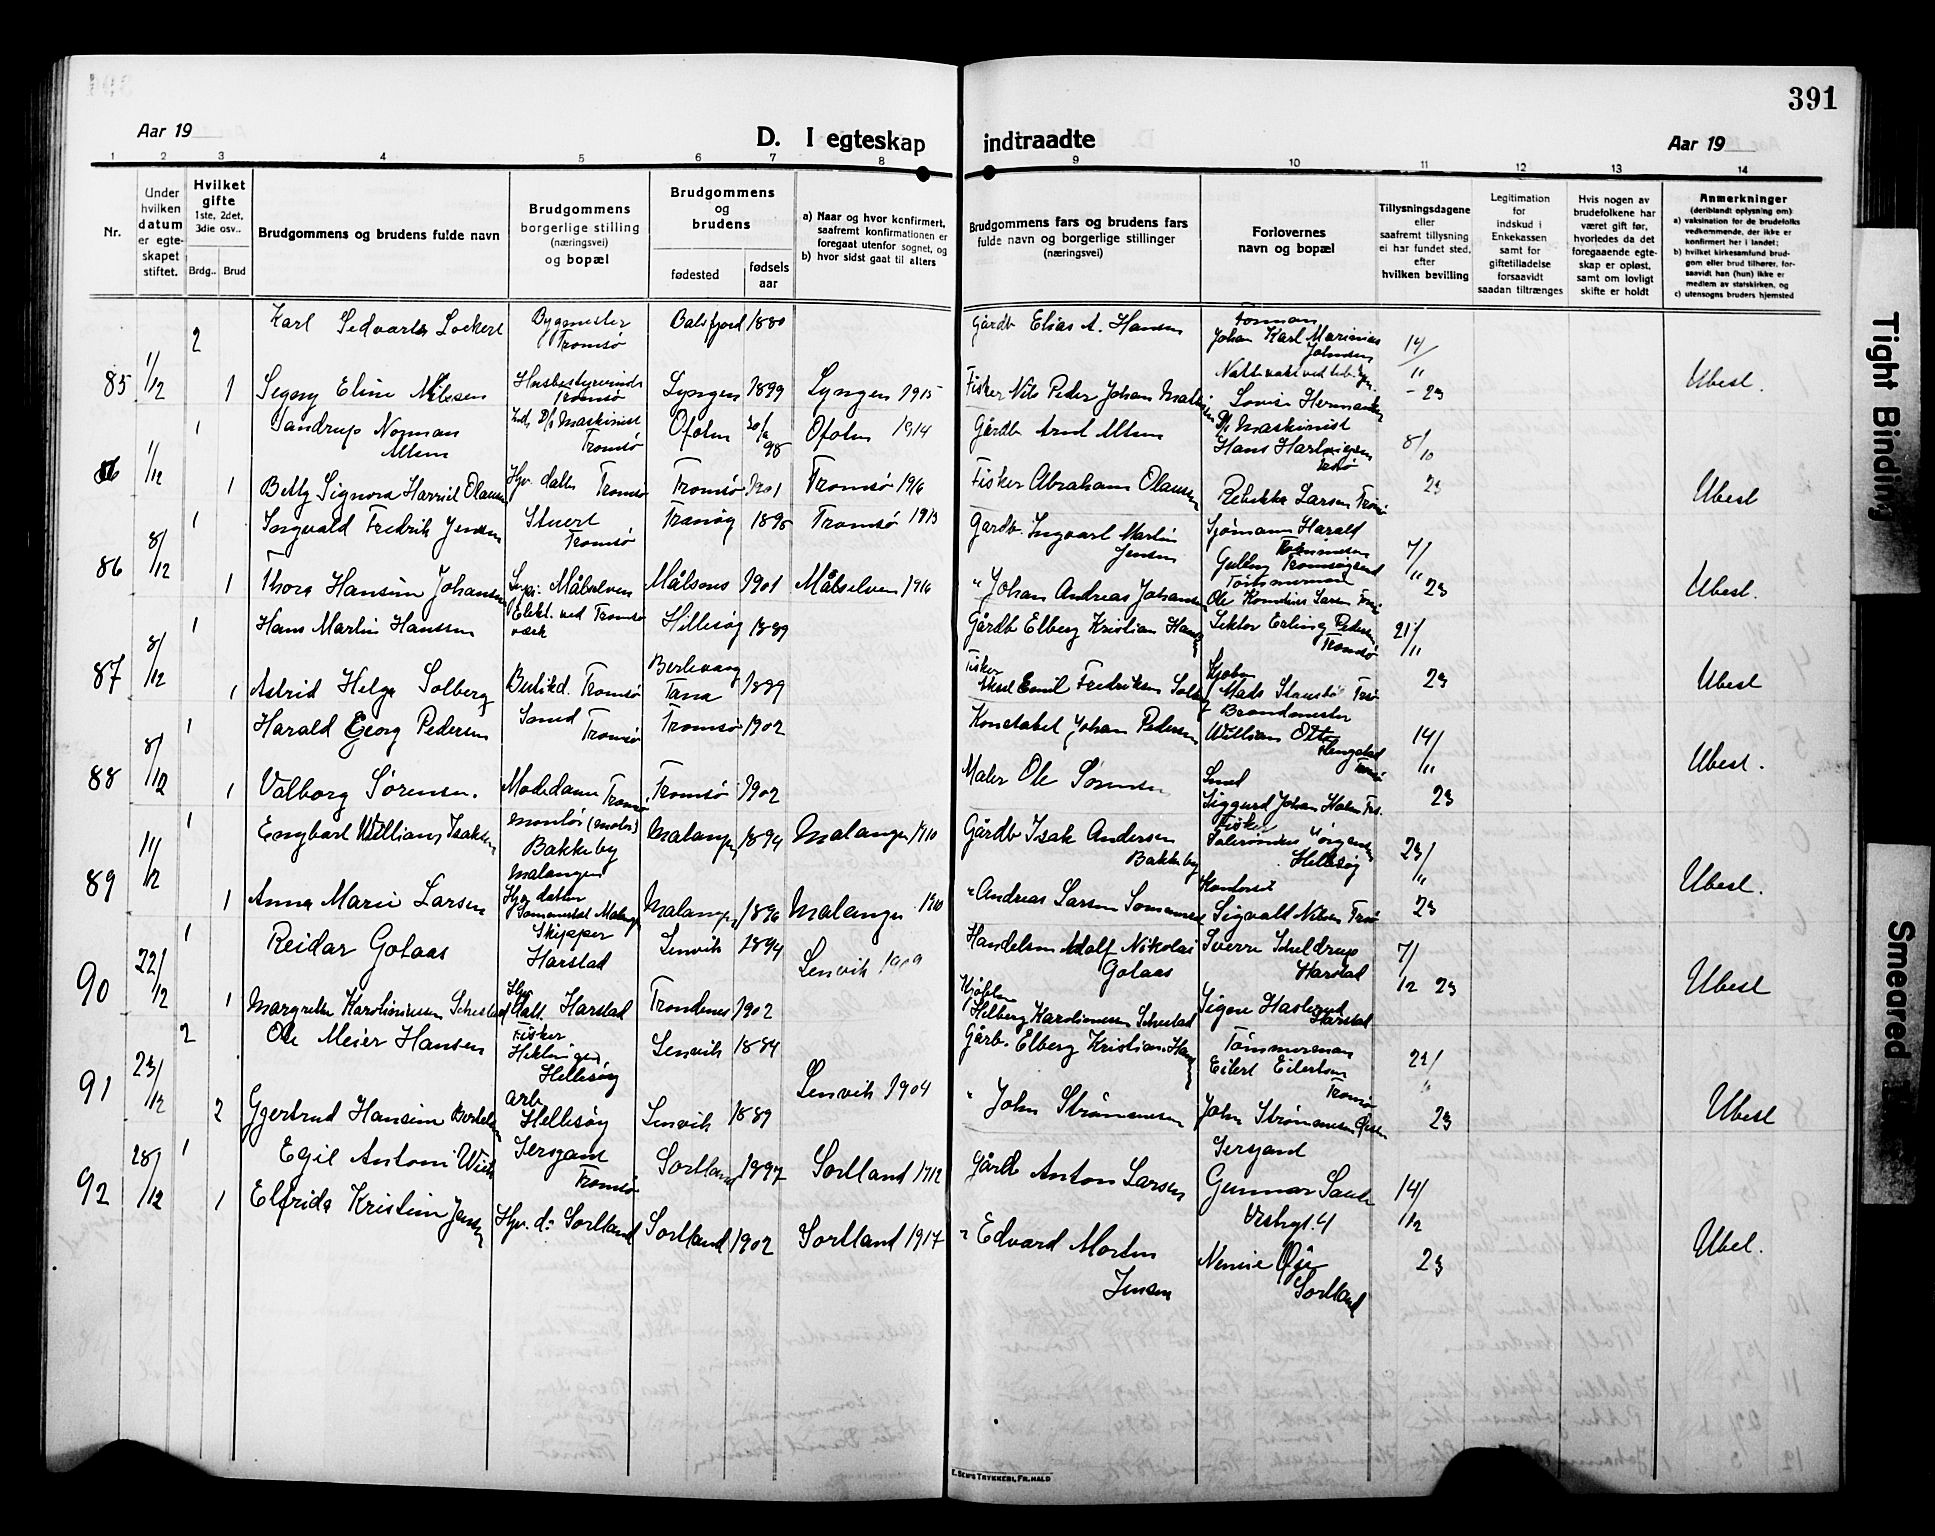 391
Aar 19
D. I egteskap indtraadte
Aar 19
1 2 3 4 5 6 7 8 9 10 11 12 13 14
Nr.
Under hvilken datum er egteskapet stiftet.
Hvilket gifte
1ste, 2det, 3die osv..
Brdg.. Brud
Brudgommens og brudens fulde navn
Brudgommens borgerlige stilling (næringsvei) og bopæl
Brudgommens og brudens
fødested
fødsels aar
a) Naar og hvor konfirmert, saafremt konfirmationen er foregaat utenfor sognet, og
b) hvor sidst gaat til alters
Brudgommens fars og brudens fars fulde navn og borgerlige stillinger (næringsvei)
Forlovernes navn og bopæl
Tillysningsdagene eller saafremt tillysning ei har fundet sted, efter hvilken bevilling
Legitimation for indskud i Enkekassen samt for giftetilladelse forsaavidt saadan tiltrænges
Hvis nogen av brudefolkene har været gift før, hvorledes da det foregaaende egteskap er opløst, samt om lovligt skifte er holdt
Anmerkninger
(deriblandt oplysning om)
a) vaksination for de brudefolks vedkommende, der ikke er konfirmert her i landet;
b) hvilket kirkesamfund brudgom eller brud tilhører, forsaavidt han (hun) ikke er medlem av statskirken, og
c) utensogns bruders hjemsted
2 Karl Sedvart Lockert Bygmester Tromsø Balsfjord 1880 Gårdb Elias A. Hansen Formann Johan Karl Marinius Johnsen 14/11
85 1/12 1 Signy Eline Nilssen Husbestyrerinde Tromsø Lyngen 1899 Lyngen 1915 Fisker Nils Peder Johan Nattevakt Lovise Hermansen - 23 Ubesl.
1 Sandrup Norman Olsen D/s Maskinist Tromsø Ofoten 98 Ofoten 1914 Gårdb D/s Maskinist Hans Hartvigsen 8/10
86 1/12 1 Betty Signora Harriet Olausen Hjv. datter Tromsø Tromsø 1901 Tromsø 1916 Fisker Abraham Olausen Rebekka Larsen Tromsø 23 Ubesl
1 Ingvald Fredrik Jensen Stuert Tromsø Tranøy 1895 Tromsø 1913 Gårdb. Ingvart Martin Jensen Sjømann Harald 7/11
86 8/12 1 Thora Hansine Johansen Målselven Målsnes 1901 Målselven 1916 " Johan Andreas Johansen Tømmermand Ole 23 Ubesl.
1 Hans Martin Hanssen Elekt. ved Tromsø værk Hillesøy 1889 Gårdb Elberg Kristian Hansen Lektor Erling Pedersen Tromsø 21/11
87 8/12 1 Astrid Helga Solberg Butikd. Tromsø Berlevaag Tana 1899 Fisker Aksel Emil Fredriksen Solberg Mads 23 Ubesl
1 Harald Georg Pedersen Smed Tromsø Tromsø 1902 Konstabel Johan Pedersen Brandmester William Otto Tromsø 14/11
88 8/12 1 Valborg Sørensen. Modedame Tromsø Tromsø 1902 Maler Ole Sørensen Smed Siggurd Johan 23 Ubesl.
1 Engbart William Isaksen montør (motor) Bakkeby malangen Malangen 1894 Malangen 1910 Gårdb Isak Andersen Bakkeby Fisker Jørgensen Hillesøy 23/11
89 11/12 1 Anna Marie Larsen Hjv datter Malangen Malangen 1896 Malangen 1910 " Andreas Larsen Kontorist Sigvald Nilsen 23 Ubesl.
1 Reidar Golaas Skipper Harstad Lenvik 1894 Lenvik 1909 Handelsm Adolf Nikolai Golaas Sverre Schjeldrup Harstad 7/12 23
90 22/12 1 Margrethe Karolinussen Hjv Datt. Harstad Trondenes 1902 Hilberg Karolinussen Signe Haslund Harstad Ubesl
2 Ole Meier Hansen Fisker Hekkingen, Hellesøy Lenvik 1884 Lenvik 1904 Gårb. Elberg Kristian Hansen Tømmermann Eilert Eilertsen Tromsø 21/11
91 23/12 2 Gjertrud Hansine Bertelsen arb Hellesøy Lenvik 1889 " John Strømmesen John Strømmesen 23 Ubesl
1 Egil Antoni Wiik Sersjant Tromsø Sortland 1897 Sortland 1912 Gårdb Anton Larsen Sersjand Gunnar 14/12
92 28/12 1 Elfrida Kristine Jensen Hjv. d: Sortland Sortland 1902 Sortland 1917 " Edvard Morten Jensen Sortland 23 Ubel.
E. SEM'S TRYKKERI, FR.HALD
Tight Binding
Smeared